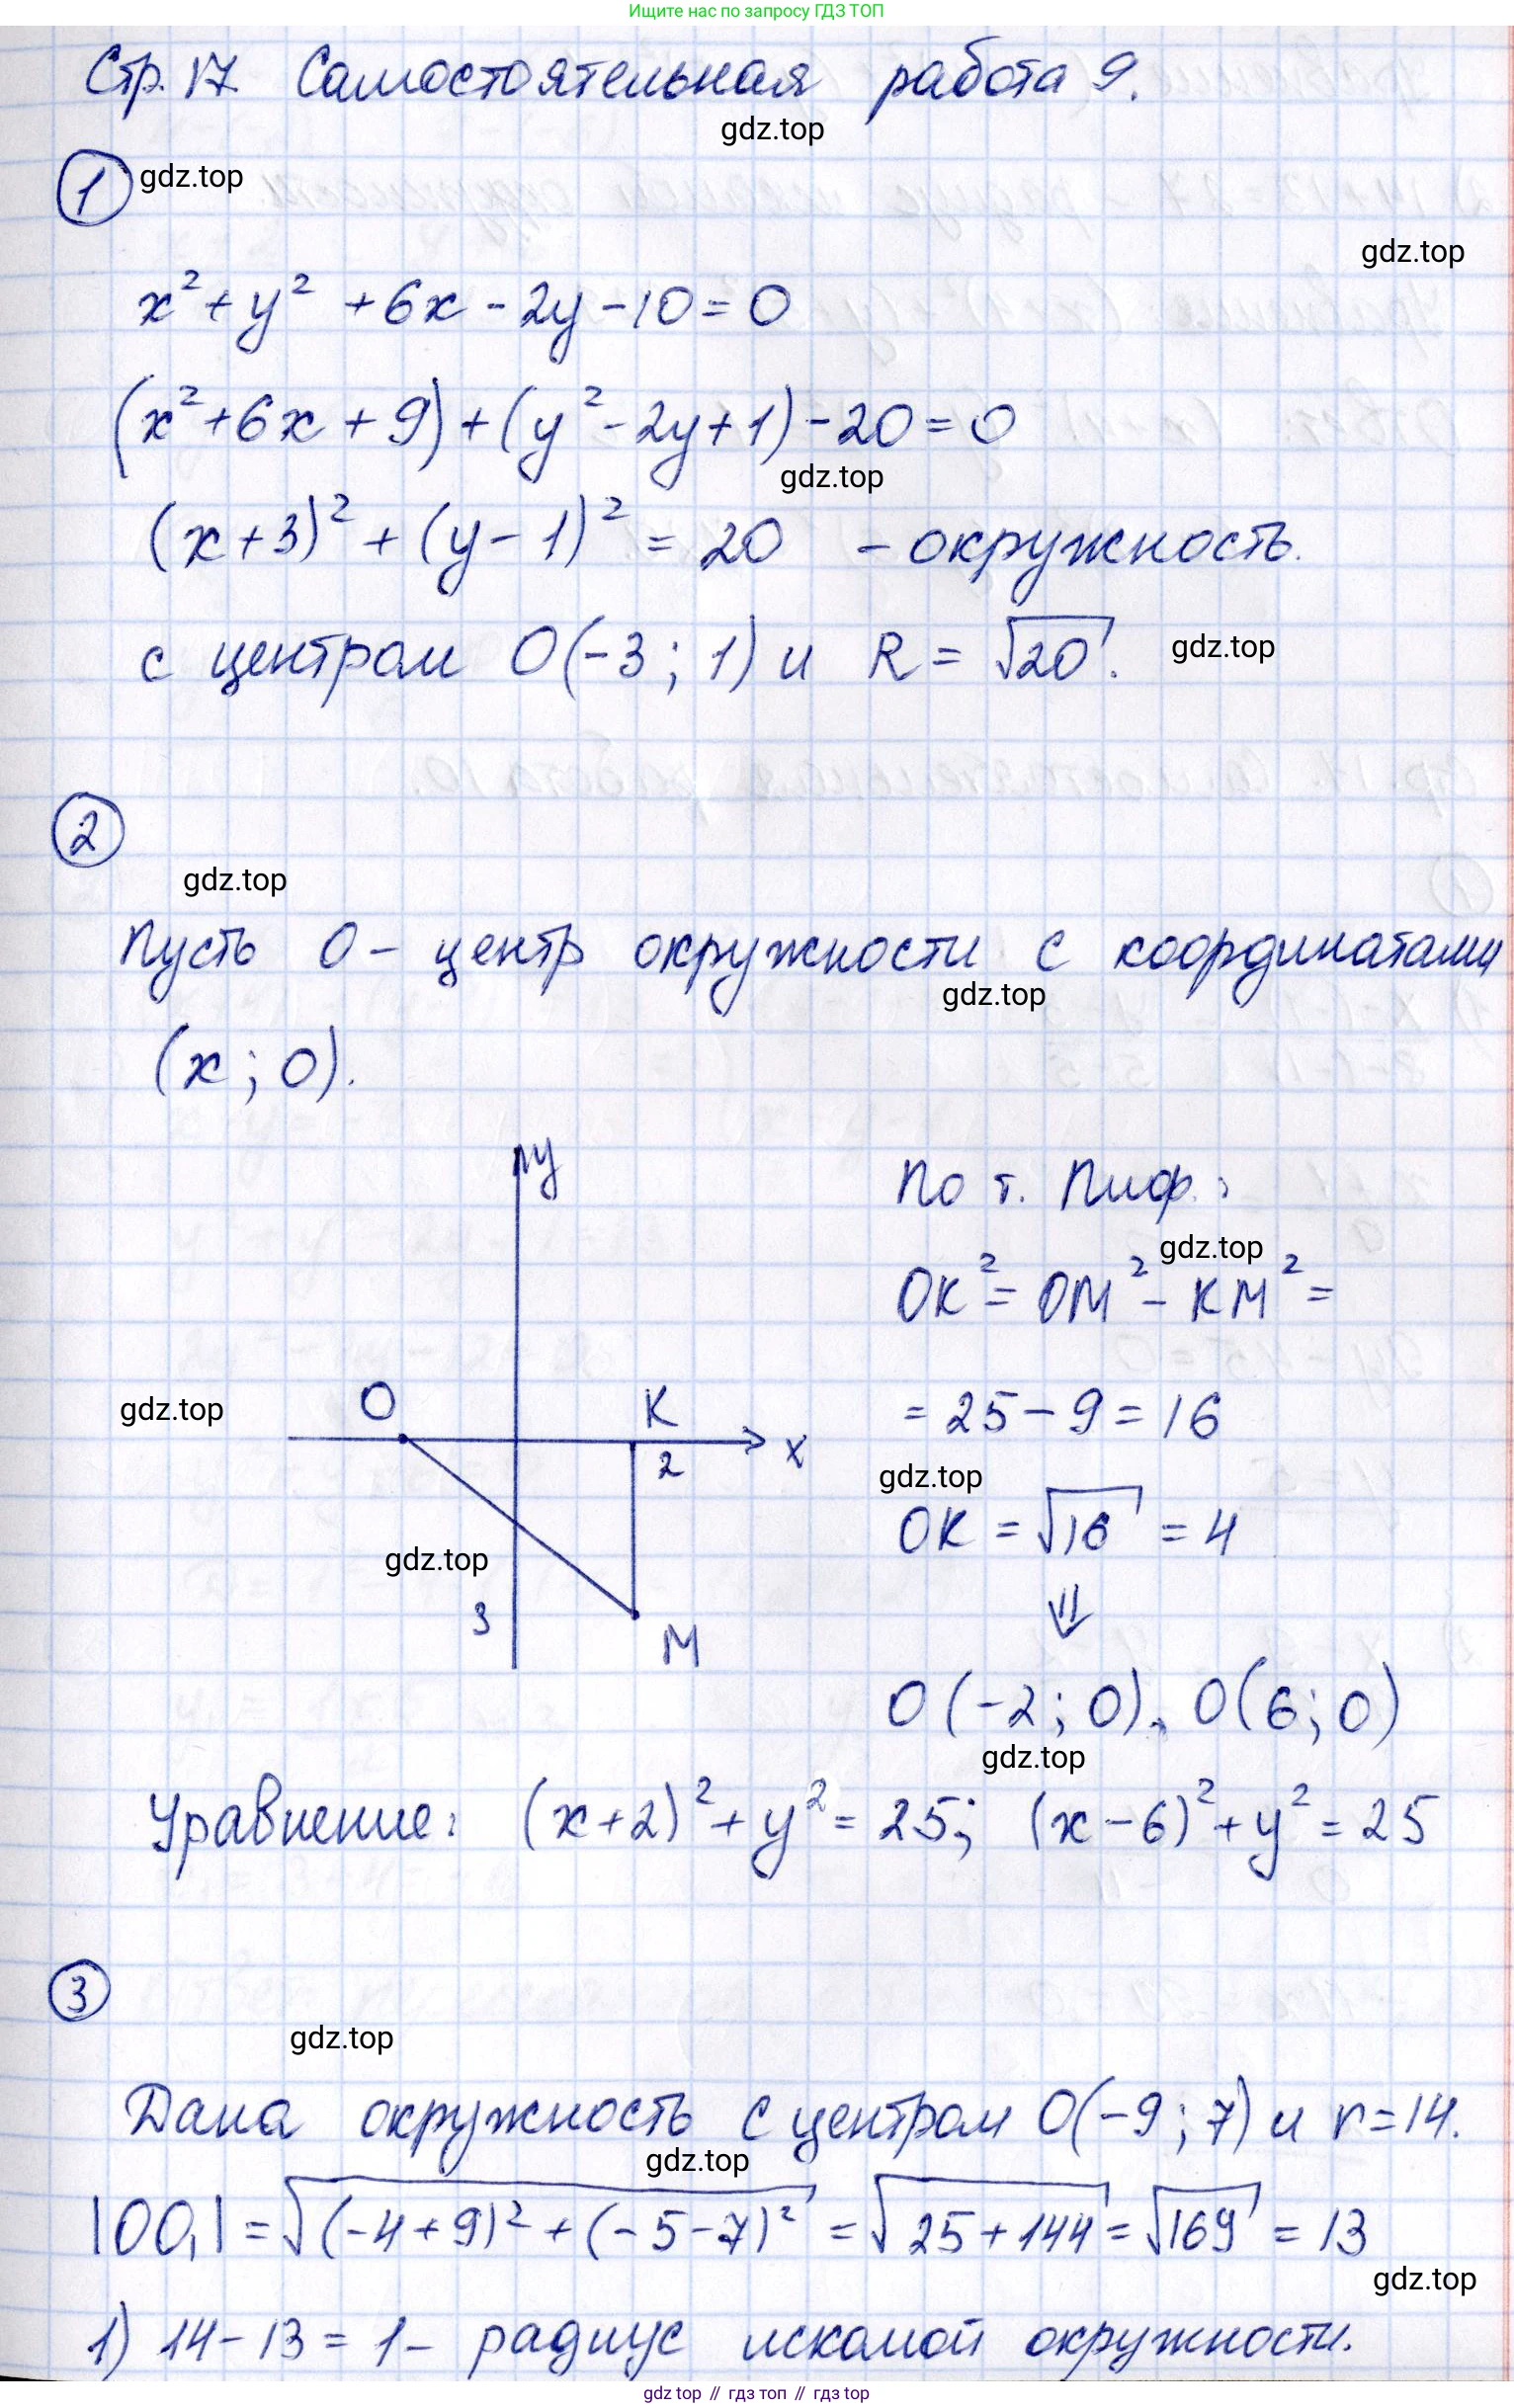 Ищите нас по запросу ГДЗ ТОП
Стр. 17. Самостоятельная работа 9.
gdz.top
1 gdz.top
gdz.top
x² + y² + 6x - 2y - 10 = 0
(x² + 6x + 9) + (y² - 2y + 1) - 20 = 0
gdz.top
(x + 3)² + (y - 1)² = 20 - окружность.
с центром O(-3; 1) и R = √20. gdz.top
2
gdz.top
Пусть O - центр окружности с координатами
gdz.top
(x; 0).
y
По т. Пиф.:
gdz.top
OK² = OM² - KM² =
O K
gdz.top
= 25 - 9 = 16
x
2
gdz.top
OK = √16 = 4
gdz.top
⇓
3
M
O(-2; 0), O(6; 0)
gdz.top
Уравнение: (x + 2)² + y² = 25; (x - 6)² + y² = 25
3
gdz.top
Дана окружность с центром O(-9; 7) и r = 14.
gdz.top
|OO₁| = √((-4 + 9)² + (-5 - 7)²) = √(25 + 144) = √169 = 13
gdz.top
1) 14 - 13 = 1 - радиус искомой окружности.
gdz top // гдз топ // гдз top